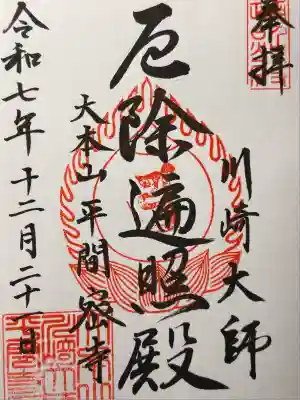 奉拝
川崎大師
厄除遍照殿
大本山 平間密寺
令和七年十二月二十日